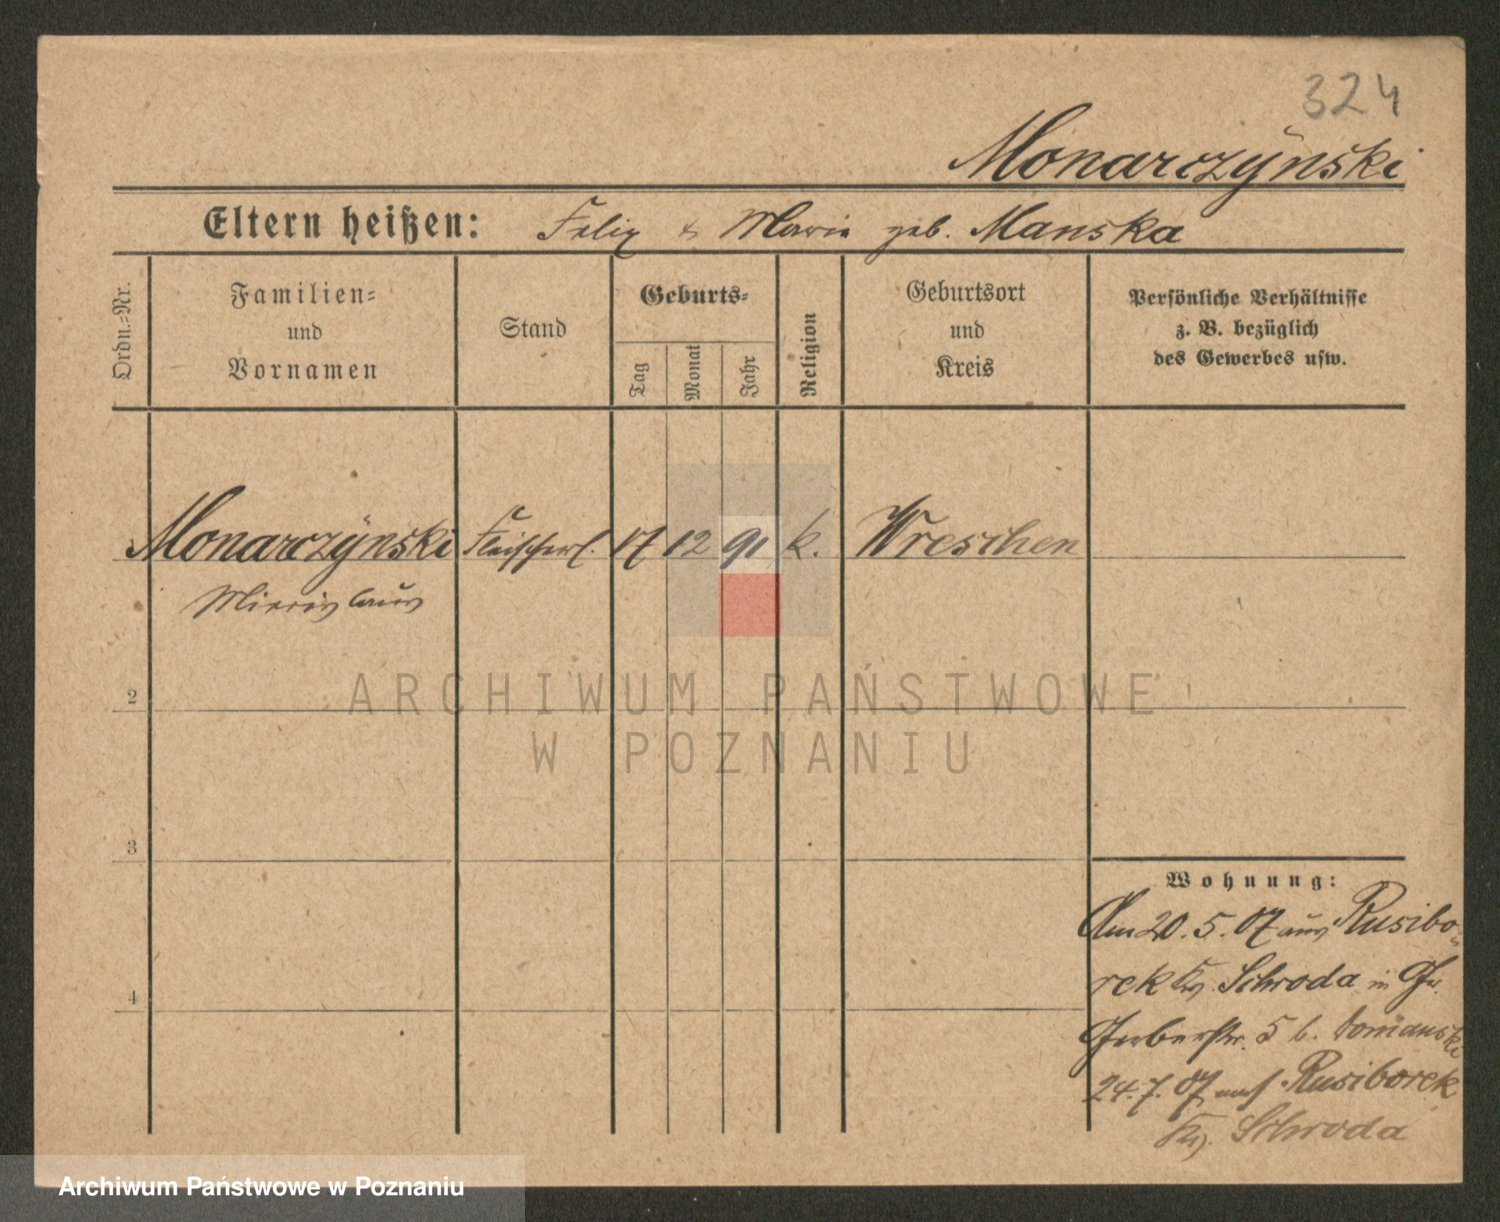 324
Monarczÿnski
Eltern heißen: Felix & Marie geb. Manska
Ordn.=Nr.
Familien=
und
Vornamen
Stand
Geburts=
Tag
Monat
Jahr
Religion
Geburtsort
und
Kreis
Persönliche Verhältnisse
z. B. bezüglich
des Gewerbes usw.
1 Monarczÿnski Fleischerl. 17 12 91 k. Wreschen
ARCHIWUM PAŃSTWOWE
W POZNANIU
2
3
4
Wohnung:
Am 20.5.07 aus Rusibo-
rek Krs. Schroda in
Gerberstr. 5 b. Tomanski
24.7.07 nach Rusiborek
Krs. Schroda
Archiwum Państwowe w Poznaniu